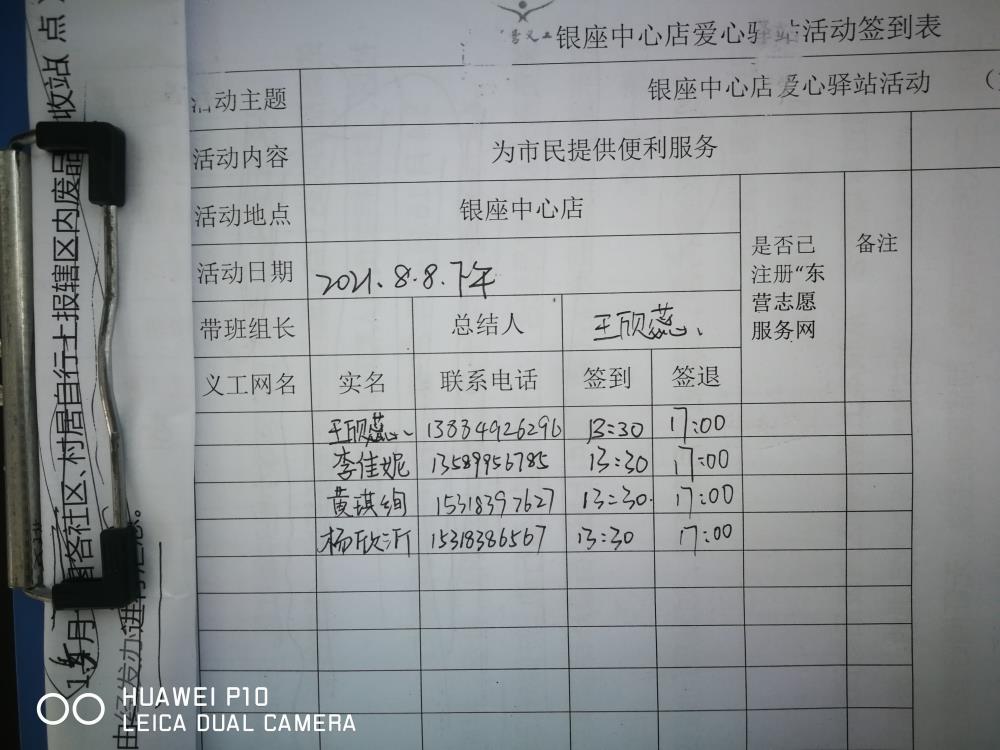 银座中心店爱心驿站活动签到表
活动主题 银座中心店爱心驿站活动
活动内容 为市民提供便利服务
活动地点 银座中心店
活动日期 2021.8.8.下午
是否已注册“东营志愿服务网
备注
带班组长 总结人 王欣蕊、
义工网名 实名 联系电话 签到 签退
王欣蕊、 13834926296 13:30 17:00
李佳妮 13589956785 13:30 17:00
黄琪绚 15318397627 13:30. 17:00
杨欣沂 15318386567 13:30 17:00
各社区、村居自行上报辖区内废品
收站点
HUAWEI P10
LEICA DUAL CAMERA